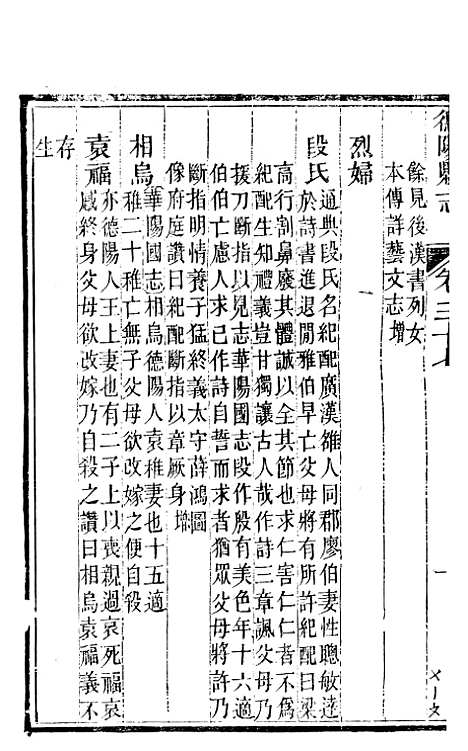 德陽縣志 卷三十九
餘見後漢書列女
本傳詳藝文志增
烈婦
段氏 通典段氏名紀配廣漢雒人同郡廖伯妻性聰敏達
於詩書進退閒雅伯早亡父母將有所許紀配曰梁
高行割鼻廢其體誠以全其節也求仁害仁仁者不為
紀配生知禮義豈甘獨讓古人哉作詩三章諷父母乃
援刀斷指以見志華陽國志段作殷有美色年十六適
伯伯亡慮人求己作詩自誓而求者猶眾父母將許乃
斷指明情養子猛終義太守薛鴻圖
像府庭讚曰紀配斷指以章厥身增
相烏 華陽國志相烏德陽人袁稚妻也十五適
稚二十稚亡無子父母欲改嫁之便自殺
袁福 亦德陽人王上妻也有二子上以喪親過哀死福哀
慼終身父母欲改嫁乃自殺之讚曰相烏袁福義不
存
生
一